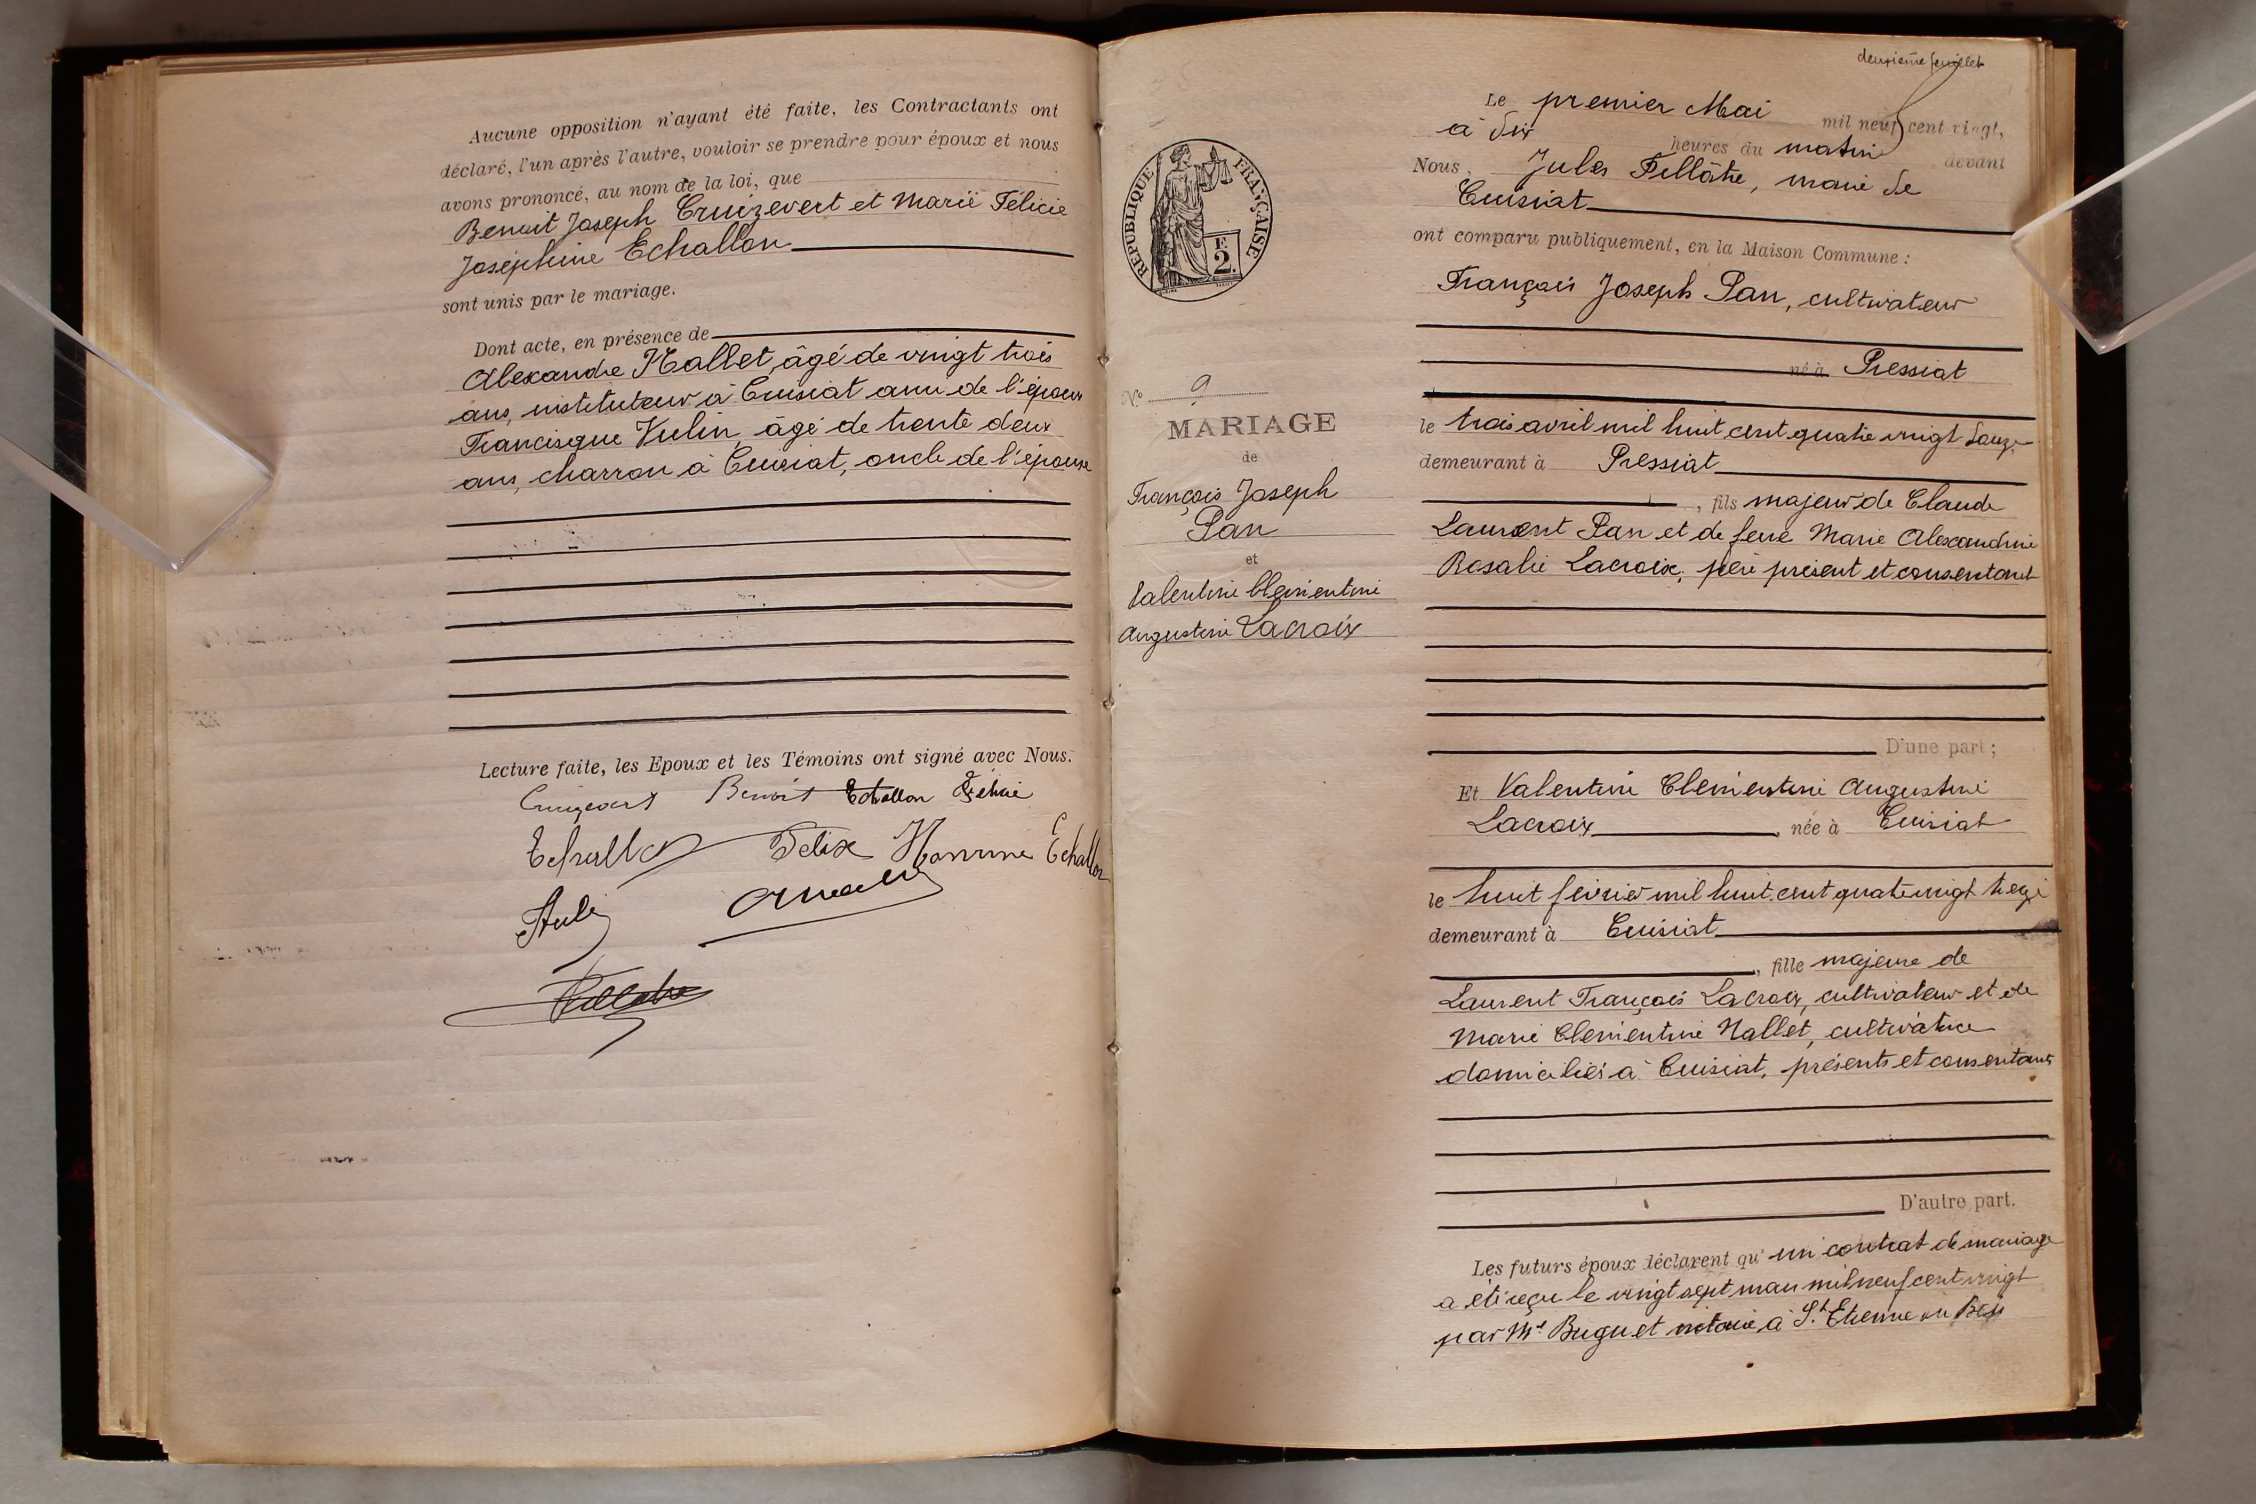 Aucune opposition n'ayant été faite, les Contractants ont
déclaré, l'un après l'autre, vouloir se prendre pour époux et nous
avons prononcé, au nom de la loi, que
Benoit Joseph Cruizevert et Marie Félicie
Joséphine Echallon
sont unis par le mariage.
Dont acte, en présence de
Alexandre Mallet, âgé de vingt trois
ans, instituteur à Cuisiat ami de l'époux
Francisque Vulin, âgé de trente deux
ans, charron à Cuisiat, oncle de l'épouse
Lecture faite, les Epoux et les Témoins ont signé avec Nous.
Benoit Echallon Félicie
Echallon Félix Hommme Echallon
deuxième feuillet
RÉPUBLIQUE FRANÇAISE
F.
2.
No 9
MARIAGE
de
François Joseph
Pan
et
Valentine Clementine
Augustine Lacroix
Le premier Mai mil neuf cent vingt,
à dix heures du matin devant
Nous, Jules Pellâtre, maire de
Cuisiat
ont comparu publiquement, en la Maison Commune :
François Joseph Pan, cultivateur
né à Pressiat
le trois avril mil huit cent quatre vingt douze
demeurant à Pressiat
, fils majeur de Claude
Laurent Pan et de feue Marie Alexandrine
Rosalie Lacroix, père présent et consentant
D'une part ;
Et Valentine Clementine Augustine
Lacroix, née à Cuisiat
le huit février mil huit cent quatre vingt treize
demeurant à Cuisiat
, fille majeure de
Laurent François Lacroix, cultivateur et de
Marie Clementine Mallet, cultivatrice
domiciliés à Cuisiat, présents et consentants
D'autre part.
Les futurs époux déclarent qu'un contrat de mariage
a été reçu le vingt sept mars mil neuf cent vingt
par Me Buguet notaire à St Etienne du Bois